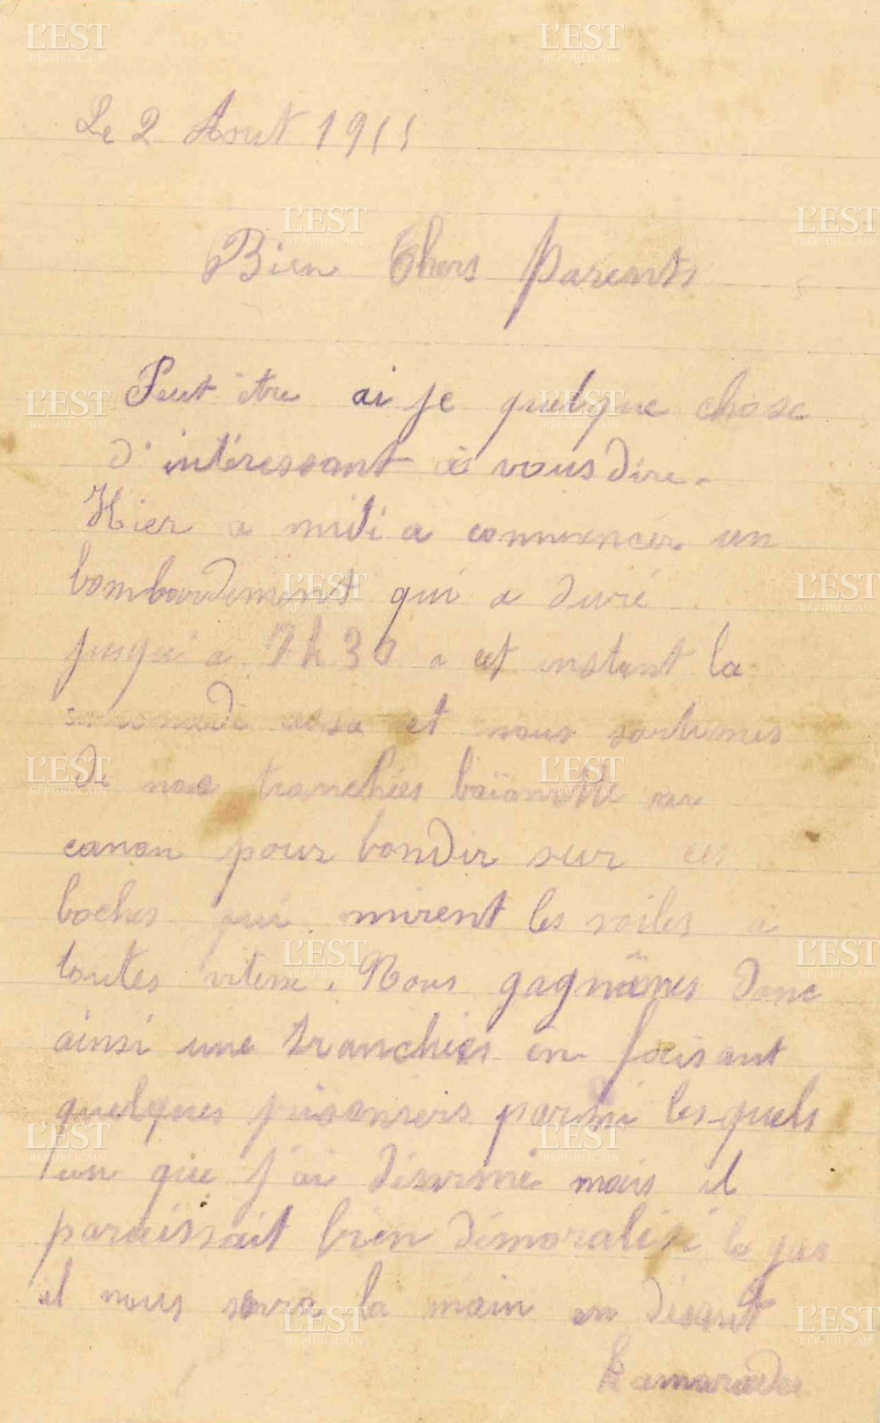 Le 2 Aout 1915
Bien Chers Parents
Peut être ai je quelque chose
d'intéressant à vous dire.
Hier a midi a commencer un
bombardement qui a duré
jusqu'a 7h30 a cet instant la
cessa et nous sortimes
de nos tranchées baïonnette au
canon pour bondir sur ces
boches qui mirent les voiles a
toutes vitesse. Nous gagnâmes donc
ainsi une tranchées en faisant
quelques prisonniers parmi les quels
un que j'ai désarmé mais il
paraissait bien démoralisé le gas
il nous serra la main en disant
Kamarades
L'EST RÉPUBLICAIN